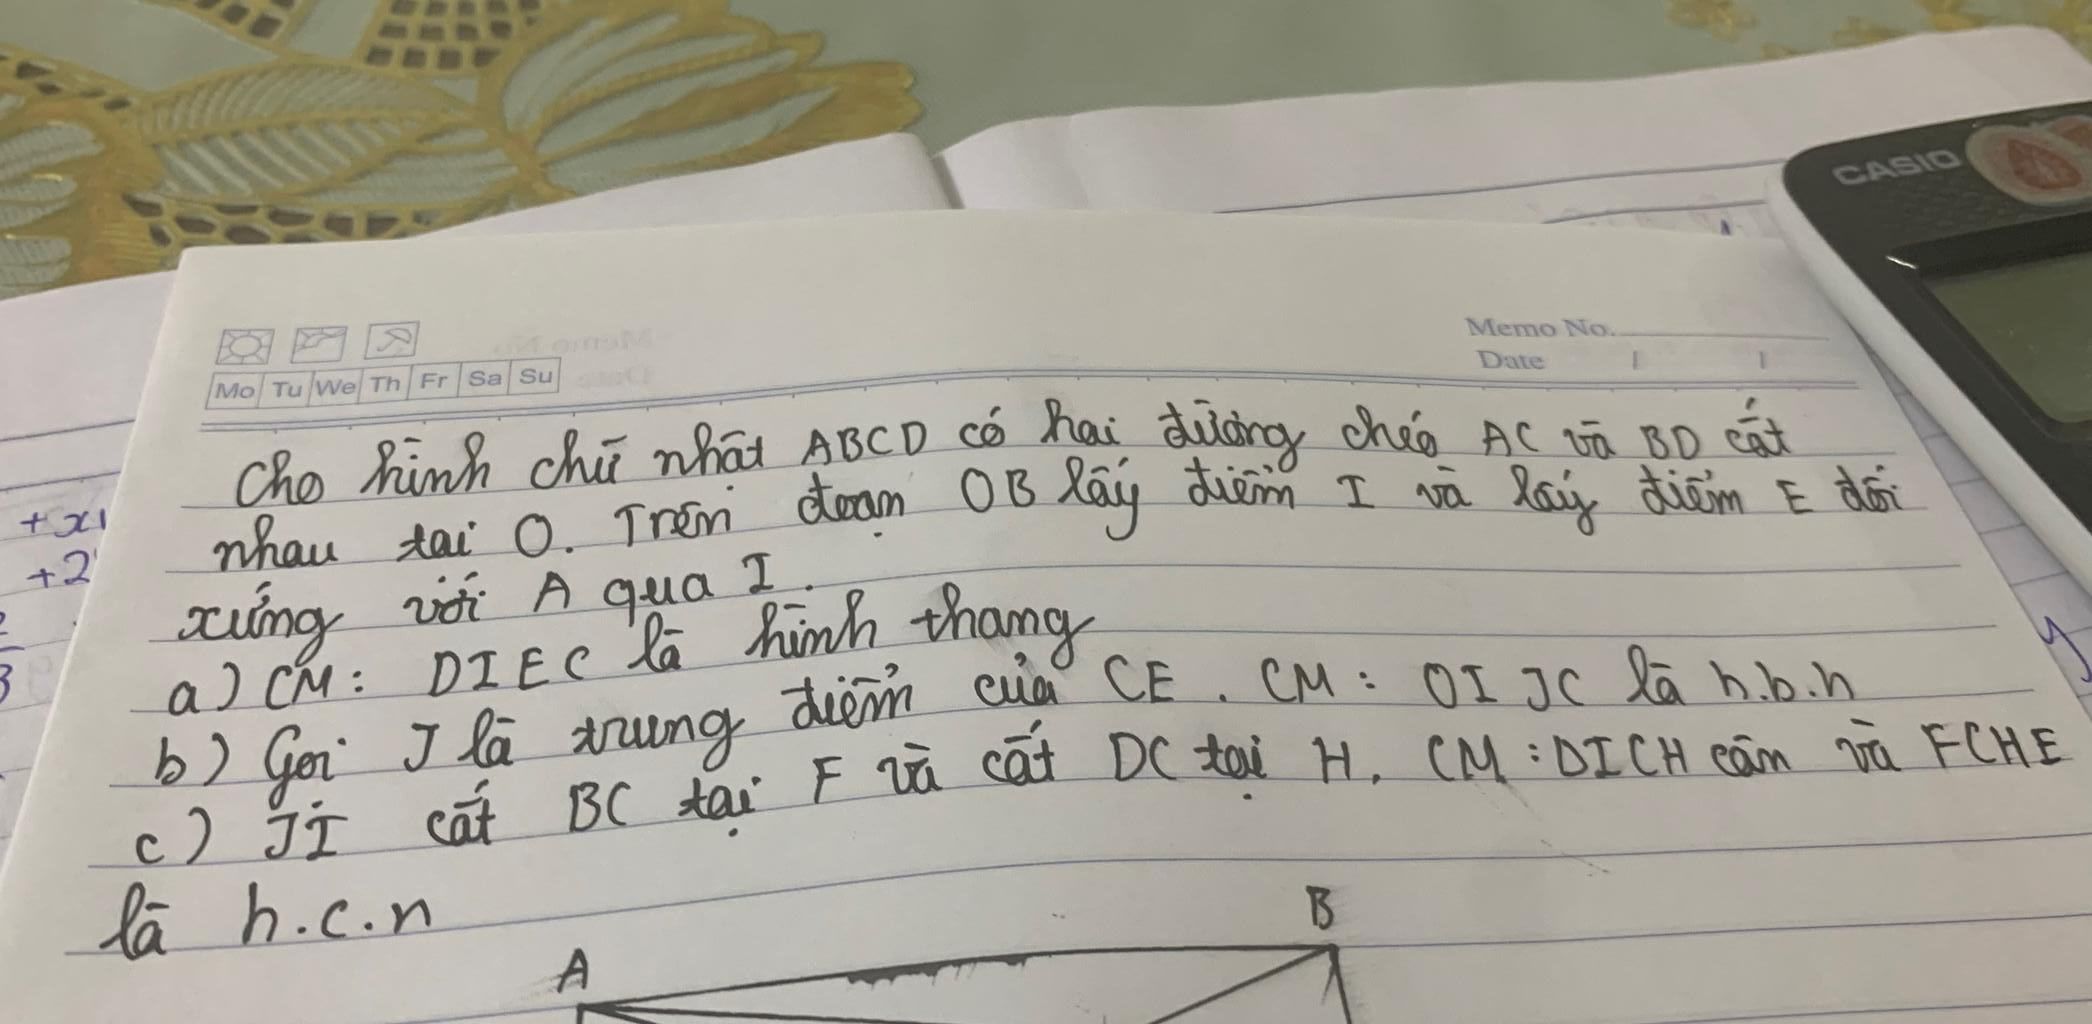 CASIO
Memo No.
Date / /
Mo Tu We Th Fr Sa Su
Cho hình chữ nhật ABCD có hai đường chéo AC và BD cắt
nhau tại O. Trên đoạn OB lấy điểm I và lấy điểm E đối
xứng với A qua I.
a) CM: DIEC là hình thang
b) Gọi J là trung điểm của CE. CM: OIJC là h.b.h
c) JI cắt BC tại F và cắt DC tại H. CM: DICH cân và FCHE
là h.c.n
A
B
+x1
+2
3
y